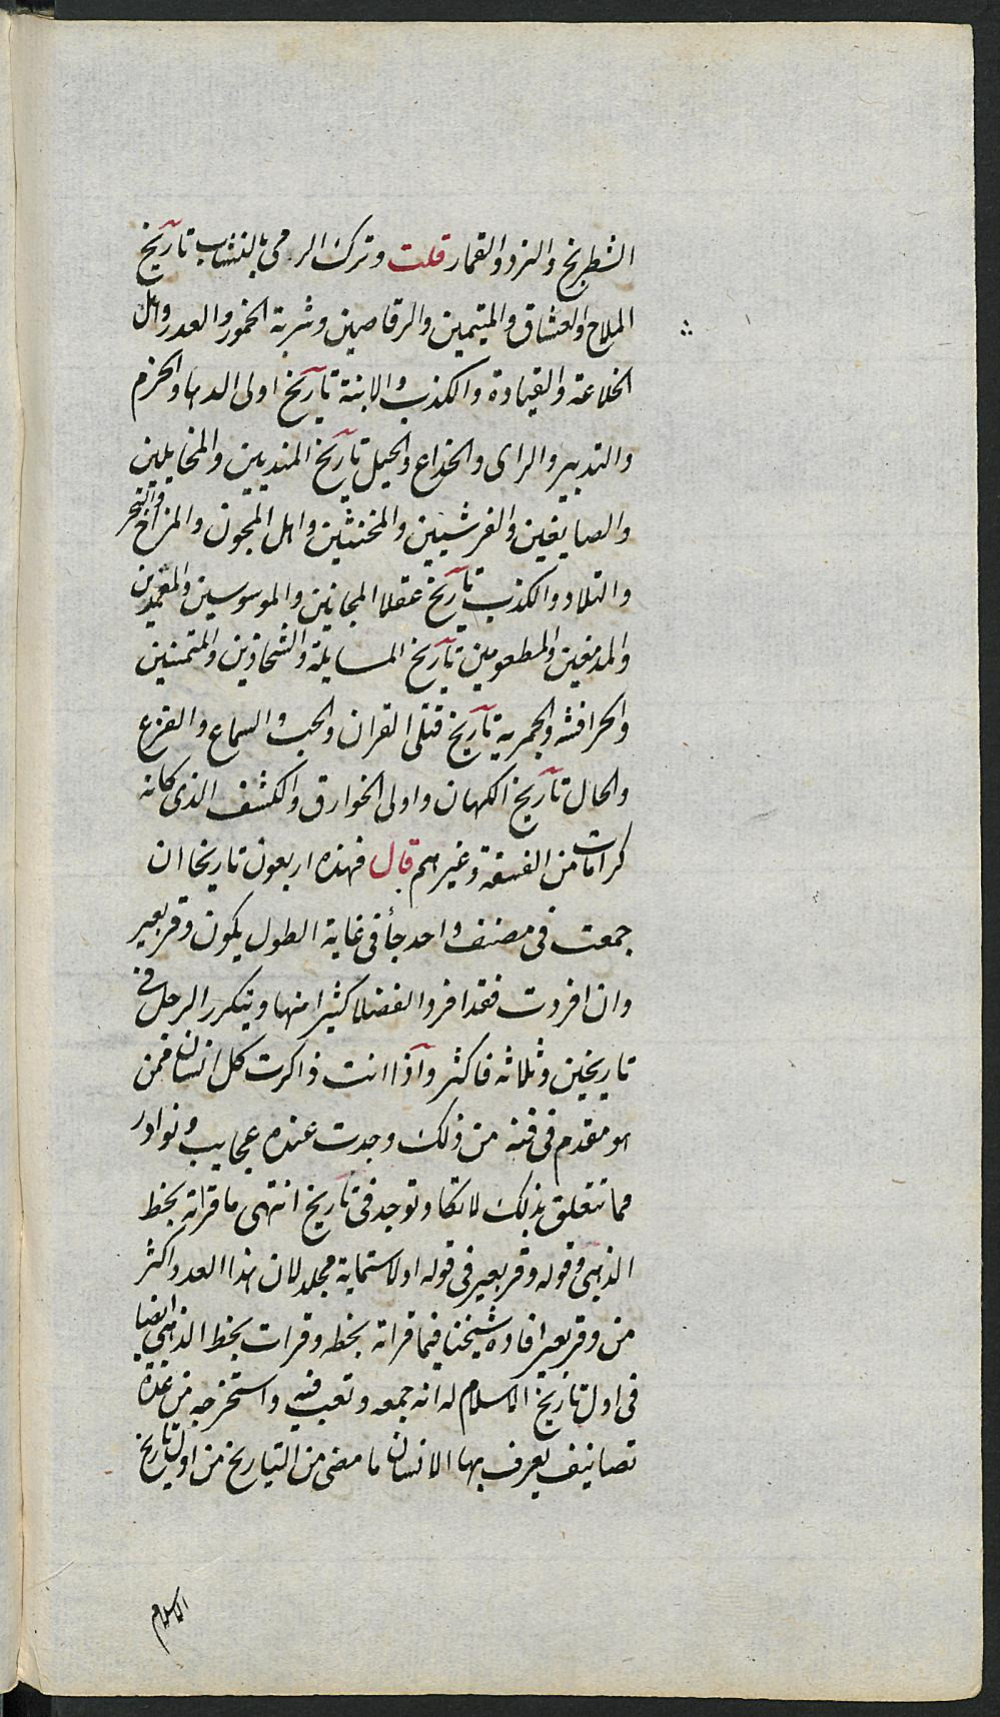 الشطرنج والنرد والقمار قلت وترك الرمى بالنشاب تاريخ
الملاح والعشاق والمتيمين والرقاصين وشربة الخمور والعدر واهل
الخلاعة والقيادة والكذب والابنة تاريخ اولى الدها والحزم
والتدبير والراى والخداع والحيل تاريخ المنديين والمخايلين
والصايغين والفرشيين والمخنثين واهل المجون والمزاح والتجر
والتلاد والكذب تاريخ عقلا المجانين والموسوسين والمغمدين
والمدمغين والمطعومين تاريخ المسايلة والشحاذين والمتمنين
والحرافشة والجمرية تاريخ قتلى القران والحب والسماع والفزع
والحال تاريخ الكهان واولى الخوارق والكشف الذى كانه
كرامات من الفسقة وغيرهم قال فهذه اربعون تاريخا ان
جمعت فى مصنف واحد جأ فى غاية الطول يكون وقر بعير
وان افردت فقد افرد الفضلا كثيرا منها ويتكرر الرجل فى
تاريخين وثلاثه فاكثر واذا انت ذاكرت كل انسان فمن
هو مقدم فى فنه من ذلك وجدت عنده عجايب ونوادر
مما تتعلق بذلك لا تكاد توجد فى تاريخ انتهى ما قراته بخط
الذهبى وقوله وقر بعير فى قوله اولا ستماية مجلد لان هذا العدد اكثر
من وقر بعير افاده شيخنا فيما قراته بخطه وقرات بخط الذهبى ايضا
فى اول تاريخ الاسلام له انه جمعه وتعب فيه واستخرجه من عدة
تصانيف يعرف بها الانسان ما مضى من التياريخ من اول تاريخ
الاسلام